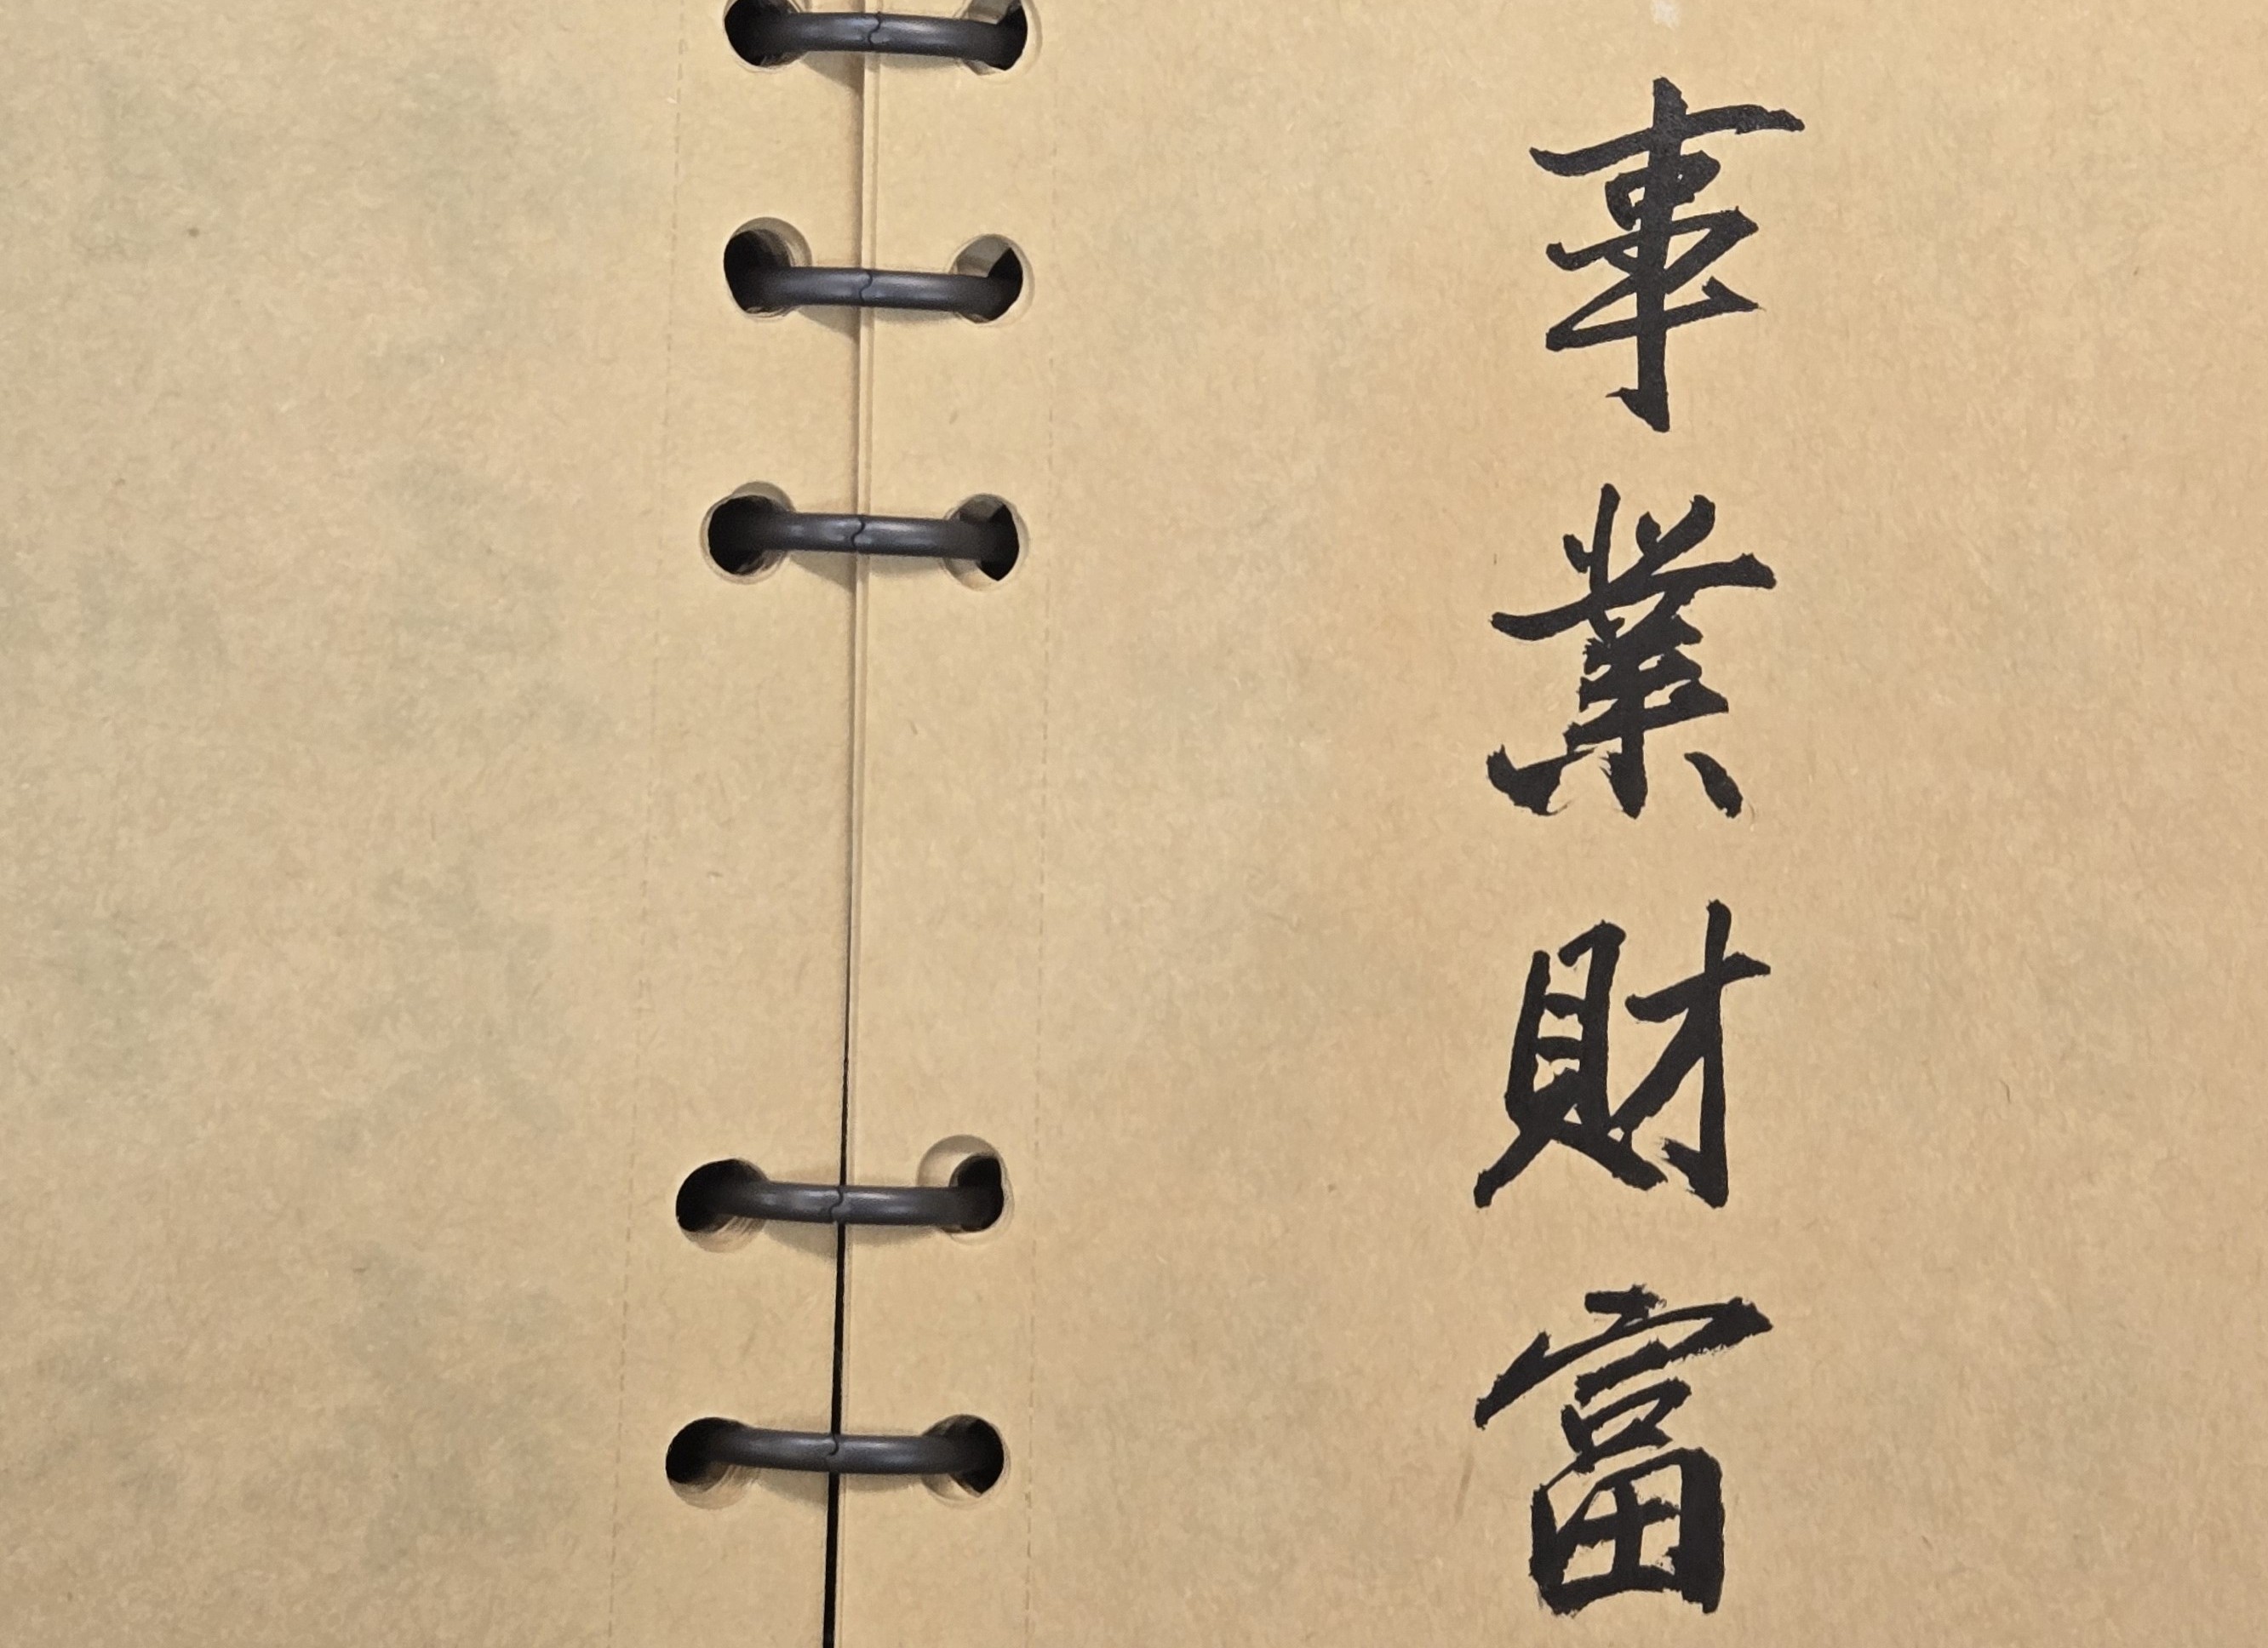 事業財富